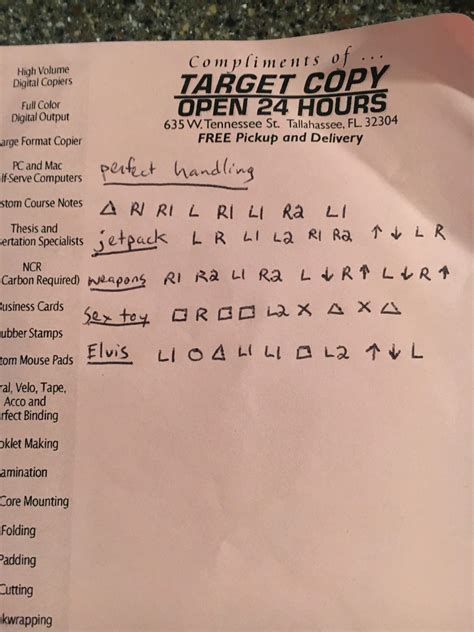 Compliments of ...
TARGET COPY
OPEN 24 HOURS
635 W. Tennessee St. Tallahassee, FL. 32304
FREE Pickup and Delivery
High Volume
Digital Copiers
Full Color
Digital Output
arge Format Copier
PC and Mac
lf-Serve Computers
stom Course Notes
Thesis and
sertation Specialists
NCR
Carbon Required)
usiness Cards
ubber Stamps
tom Mouse Pads
ral, Velo, Tape,
Acco and
rfect Binding
oklet Making
amination
Core Mounting
Folding
Padding
Cutting
kwrapping
perfect handling
△ R1 R1 L R1 L1 R2 L1
jetpack L R L1 L2 R1 R2 ↑ ↓ L R
weapons R1 R2 L1 R2 L ↓ R ↑ L ↓ R ↑
Sex toy □ R □ □ L2 X △ X △
Elvis L1 O △ L1 L1 □ L2 ↑ ↓ L